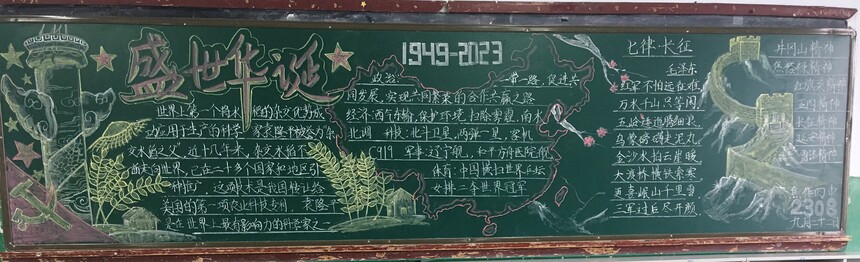 盛世华诞
世界上第一个将水稻的杂交优势成
功应用于生产的科学家袁隆平被誉为杂
交水稻之父。近十几年来,杂交水稻不
断走向世界,已在二十多个国家和地区引
种推广,这项技术是我国转让给
美国的第一项农业科技专利,袁隆平
是在世界上最有影响力的科学家之一
1949-2023
政治: 一带一路,促进共
同发展,实现共同繁荣的合作共赢之路
经济:西气东输,保护环境,扫除雾霾,南水
北调 科技:北斗卫星,两弹一星,客机
C919 军事:辽宁舰,和平方舟医院船
体育:中国横扫世界乒坛
女排:三夺世界冠军
七律·长征
毛泽东
红军不怕远征难,
万水千山只等闲。
五岭逶迤腾细浪,
乌蒙磅礴走泥丸。
金沙水拍云崖暖,
大渡桥横铁索寒。
更喜岷山千里雪,
三军过后尽开颜。
井冈山精神
焦裕禄精神
红旗渠精神
长征精神
延安精神
2308
九月二十